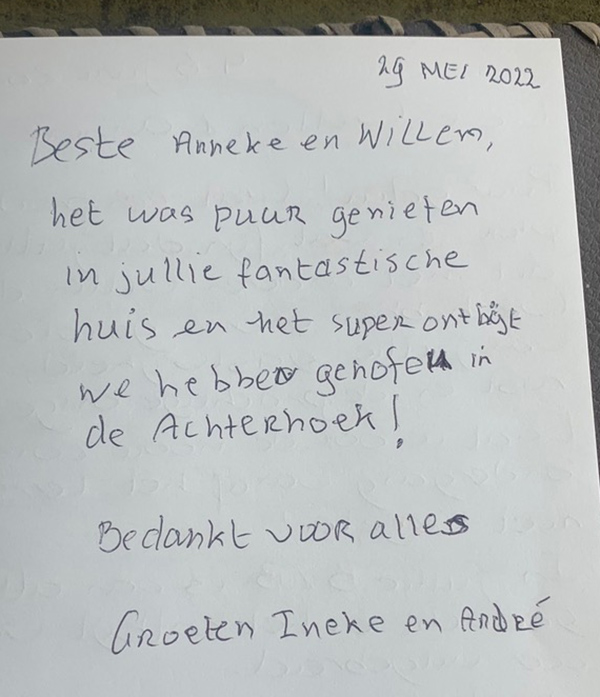 29 MEI 2022
Beste Anneke en Willem,
het was puur genieten
in jullie fantastische
huis en het super ontbijt
we hebben genoten in
de Achterhoek!
Bedankt voor alles
Groeten Ineke en André